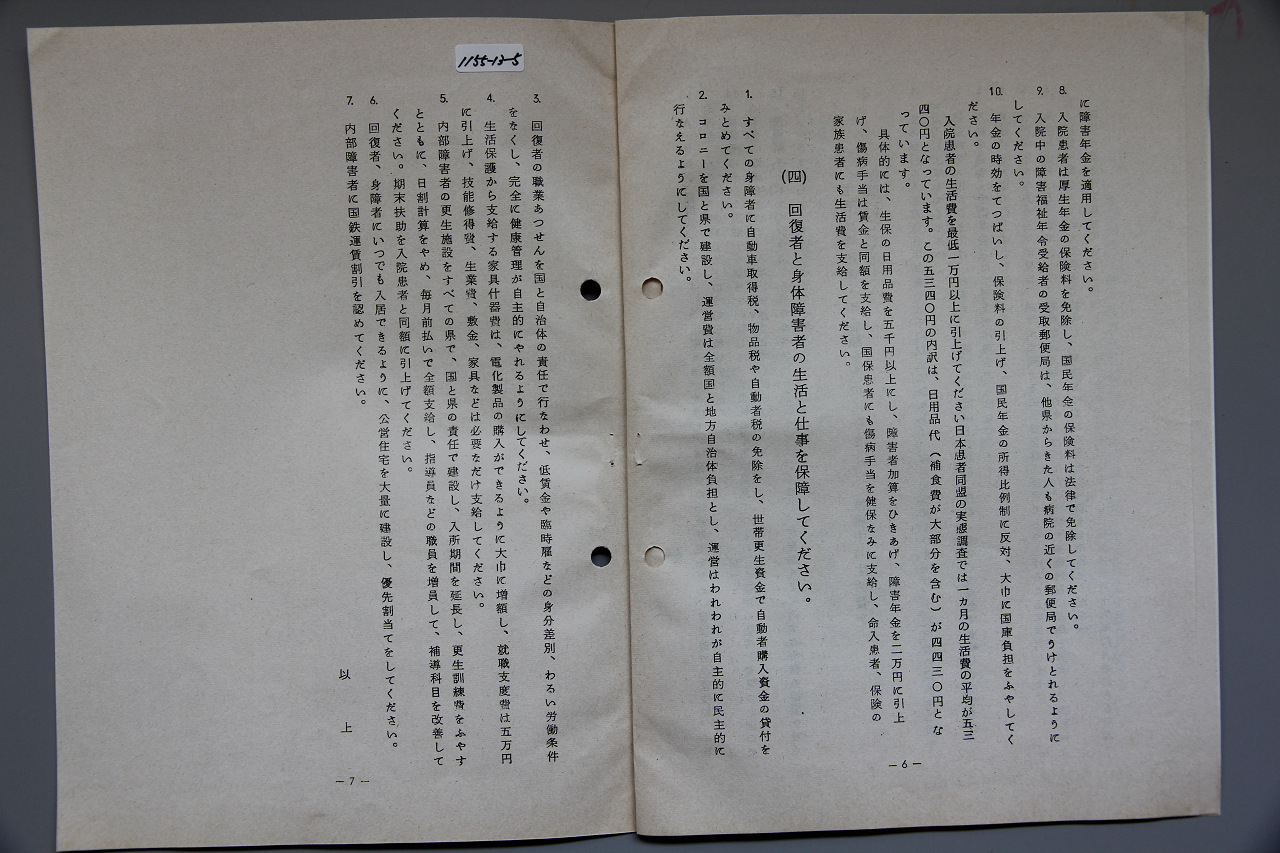 に障害年金を適用してください。
8. 入院患者は厚生年金の保険料を免除し、国民年金の保険料は法律で免除してください。
9. 入院中の障害福祉年令受給者の受取郵便局は、他県からきた人も病院の近くの郵便局でうけとれるように
してください。
10. 年金の時効をてつぱいし、保険料の引上げ、国民年金の所得比例制に反対、大巾に国庫負担をふやしてく
ださい。
入院患者の生活費を最低一万円以上に引上げてください日本患者同盟の実態調査では一カ月の生活費の平均が五三
四〇円となっています。この五三四〇円の内訳は、日用品代（補食費が大部分を含む）が四四三〇円とな
っています。
具体的には、生保の日用品費を五千円以上にし、障害者加算をひきあげ、障害年金を二万円に引上
げ、傷病手当は賃金と同額を支給し、国保患者にも傷病手当を健保なみに支給し、命入患者、保険の
家族患者にも生活費を支給してください。
(四) 回復者と身体障害者の生活と仕事を保障してください。
1. すべての身障者に自動車取得税、物品税や自動者税の免除をし、世帯更生資金で自動者購入資金の貸付を
みとめてください。
2. コロニーを国と県で建設し、運営費は全額国と地方自治体負担とし、運営はわれわれが自主的に民主的に
行なえるようにしてください。
—6—
1155-13-5
3. 回復者の職業あつせんを国と自治体の責任で行なわせ、低賃金や臨時雇などの身分差別、わるい労働条件
をなくし、完全に健康管理が自主的にやれるようにしてください。
4. 生活保護から支給する家具什器費は、電化製品の購入ができるように大巾に増額し、就職支度費は五万円
に引上げ、技能修得費、生業費、敷金、家具などは必要なだけ支給してください。
5. 内部障害者の更生施設をすべての県で、国と県の責任で建設し、入所期間を延長し、更生訓練費をふやす
とともに、日割計算をやめ、毎月前払いで全額支給し、指導員などの職員を増員して、補導科目を改善して
ください。期末扶助を入院患者と同額に引上げてください。
6. 回復者、身障者にいつでも入居できるように、公営住宅を大量に建設し、優先割当てをしてください。
7. 内部障害者に国鉄運賃割引を認めてください。
以上
—7—